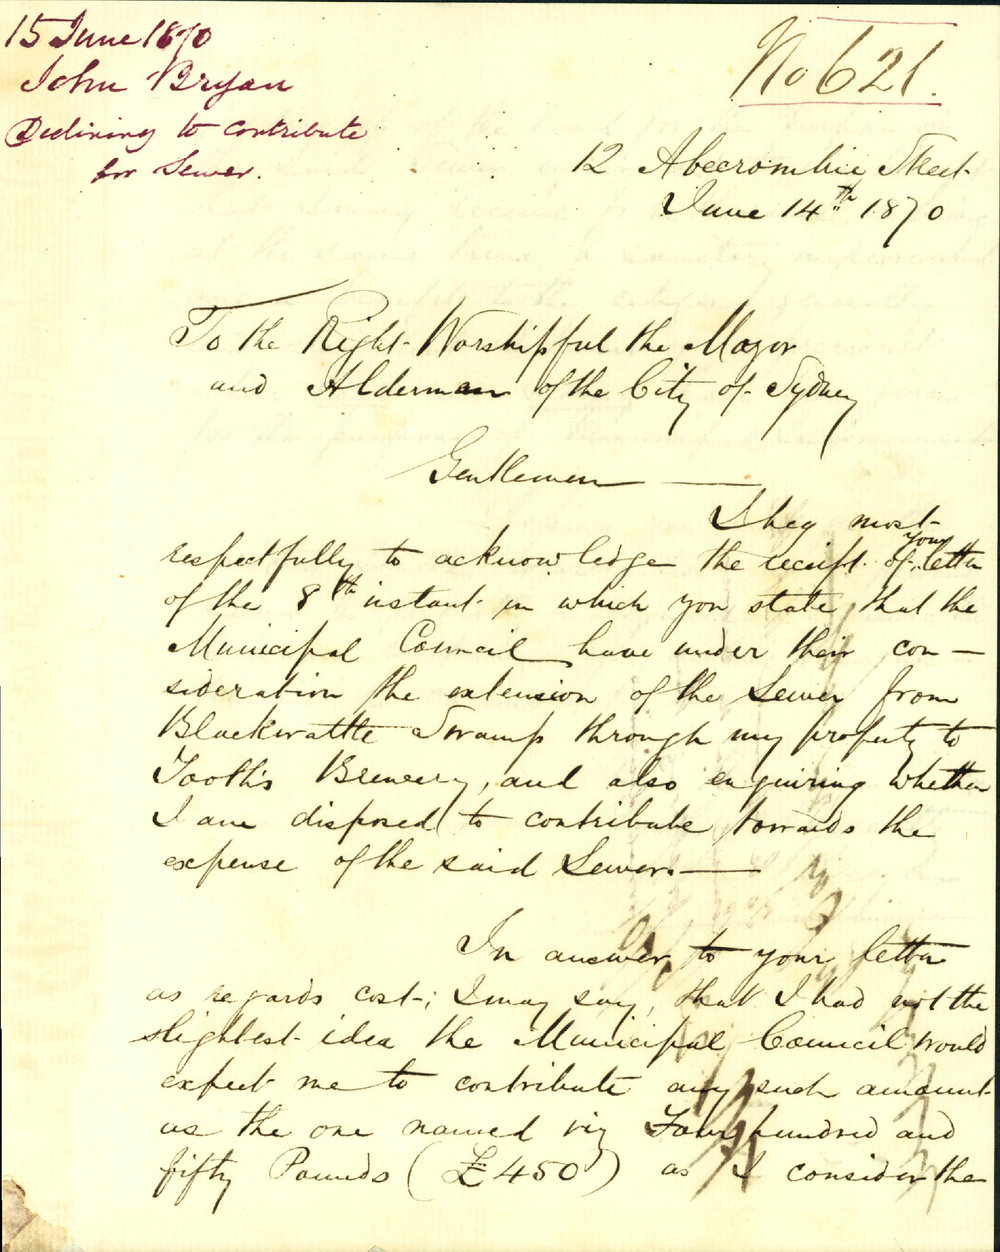 15 June 1870
John Bryan
Declining to contribute
for Sewer.
No 621.
12 Abecrombie Street
June 14th 1870
To the Right Worshipful the Mayor
and Aldermen of the City of Sydney
Gentlemen —
I beg most
respectfully to acknowledge the receipt of your letter
of the 8th instant in which you state that the
Municipal Council have under their con-
sideration the extension of the Sewer from
Blackwattle Swamp through my property to
Tooth's Brewery, and also enquiring whether
I am disposed to contribute towards the
expense of the said Sewer —
In answer to your letter
as regards cost; I may say, that I had not the
slightest idea the Municipal Council would
expect me to contribute any such amount
as the one named viz Four hundred and
fifty Pounds (£450) as I consider the